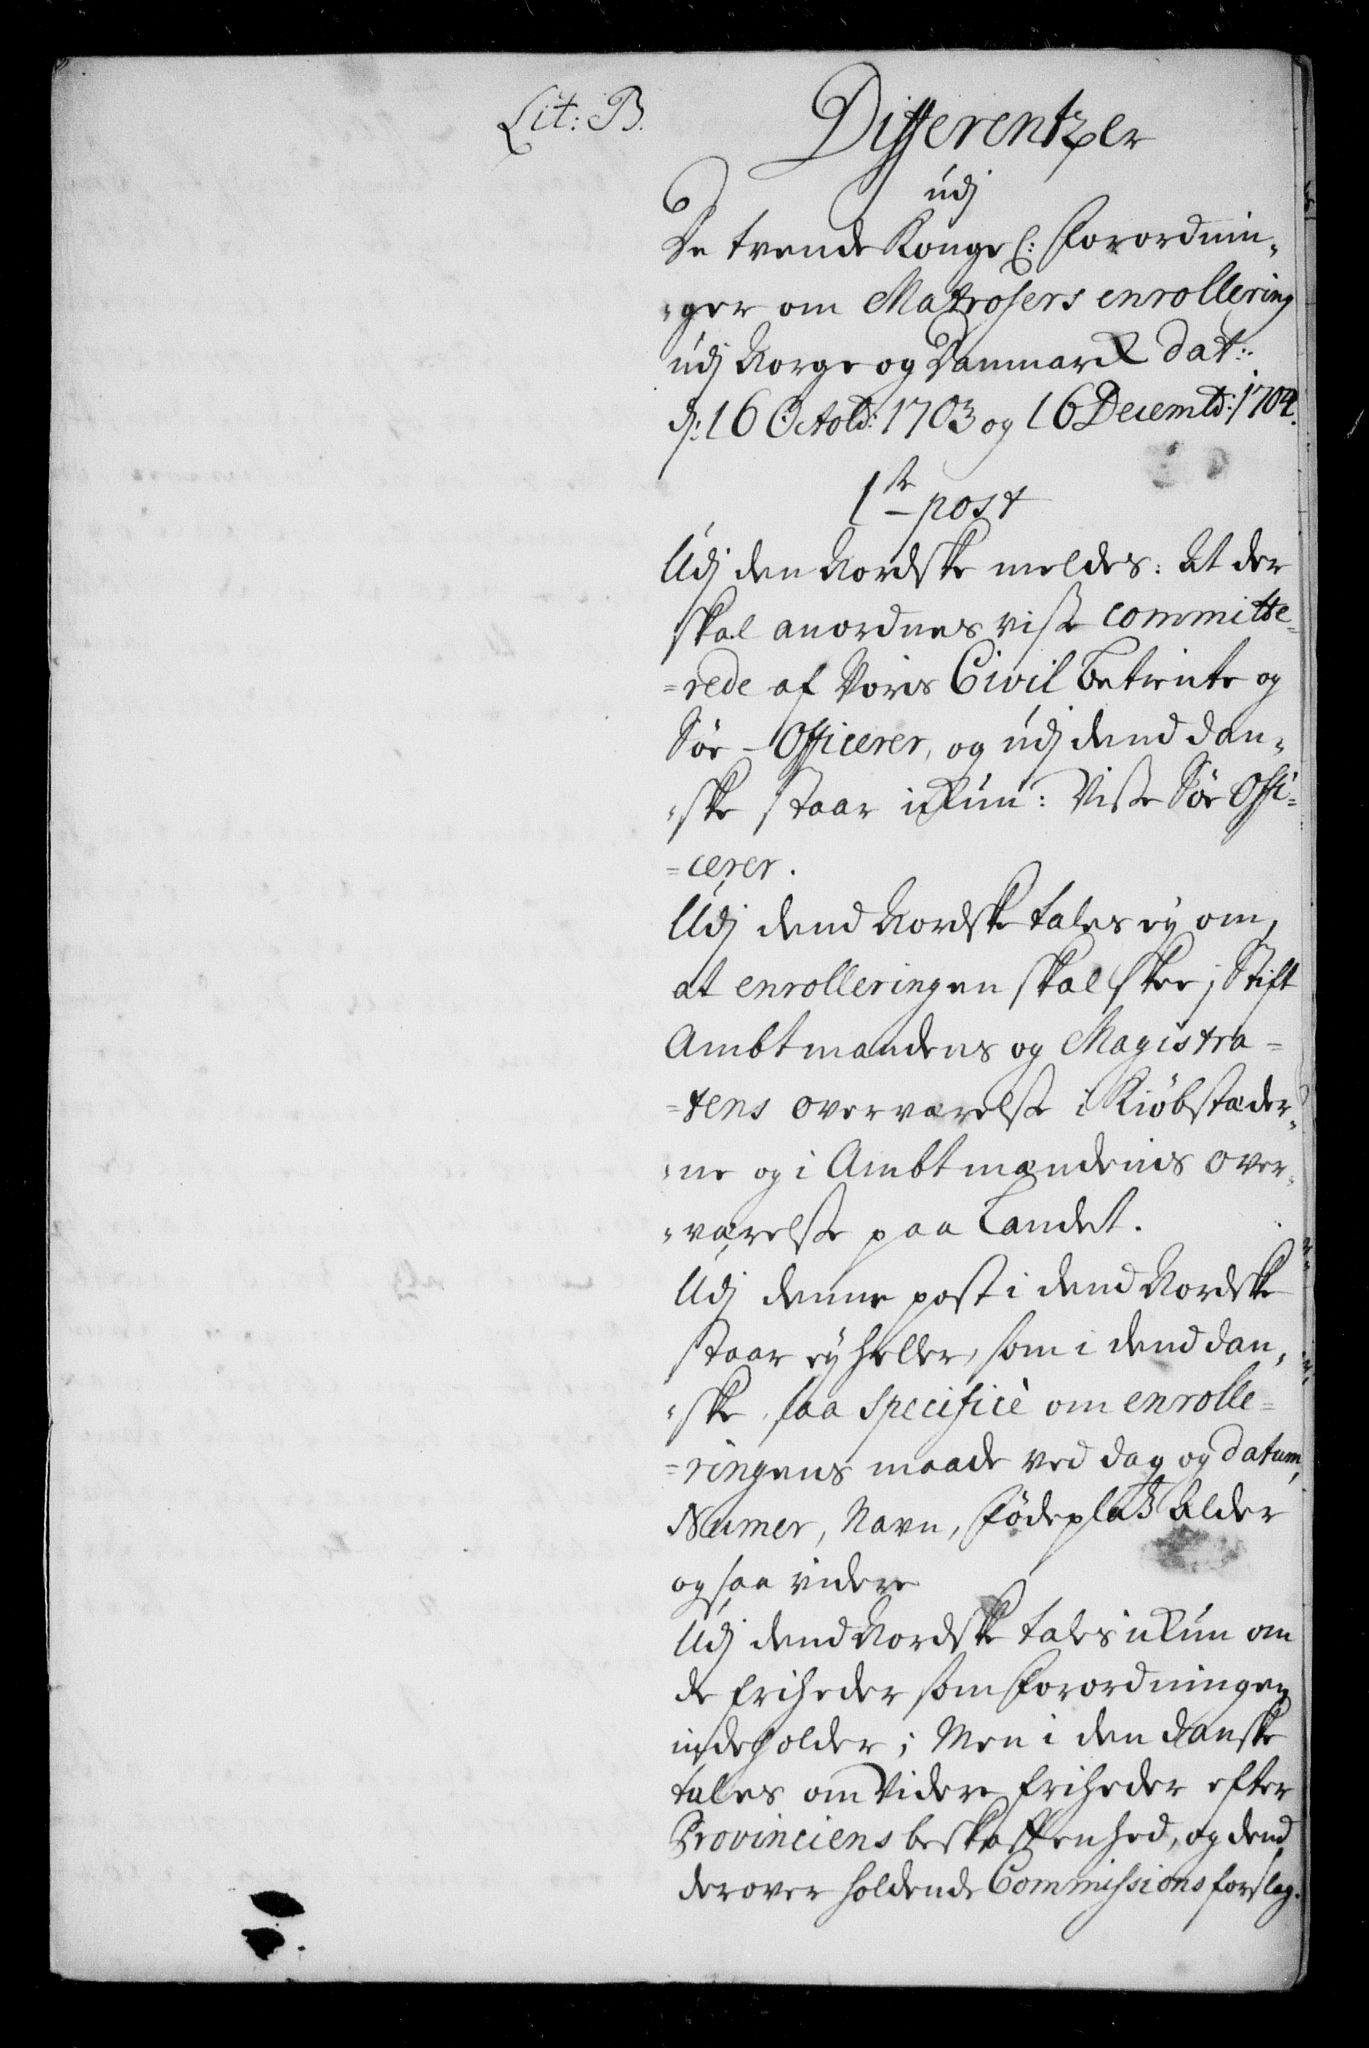 Lit: B.
Differentzer
udj
De trende Konge l: Forordnin-
-ger om Matrosers enrollering
udj Norge og Danmark dat:
d: 16 Octobr: 1703 og 16 Decembr: 1704.
1te post
Udj den Nordske meldes: At der
skal anordnes visse committe=
=rede af Voris Civil betiente og
Söe-Officerer, og udj dend dan-
-ske staar ickun: Visse Söe Offi=
=cerer.
Udj dend Nordske tales ej om,
at enrolleringen skal skee j Stift
Ambtmandens og Magistra=
=tens overværelse i Kiöbstæder-
-ne og i Ambtmandens over-
-værelse paa Landet.
Udj denne post i dend Nordske
staar ej heller, som i dend dan-
-ske, saa specificè om enrolle=
=ringens maade ved dag og datum,
Numer, Navn, födeplads Alder
og saa videre
Udj dend Nordske tales ickun om
de friheder som Forordningen
indeholder; Men i den danske
tales om Videre friheder efter
Provinciens beskaffenhed, og dend
derover holdende Commissions forslag.